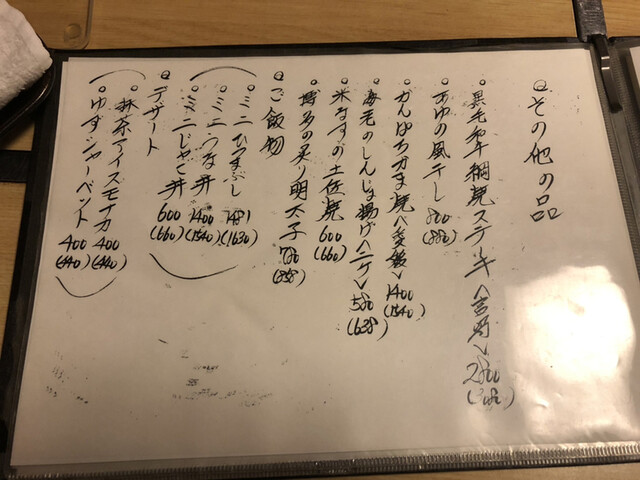 その他の品
黒毛和牛網焼ステーキ 2800 (3080)
あゆの風干し 800 (880)
かんぱちかま焼(愛媛) 1400 (1540)
海老のしんじょ揚げ(二ケ) 580 (638)
米なすの土佐焼 600 (660)
博多の炙り明太子 780 (858)
ご飯物
ミニひつまぶし 1481 (1630)
ミニうな丼 1400 (1540)
ミニじゃこ丼 600 (660)
デザート
抹茶アイスモナカ 400 (440)
ゆずシャーベット 400 (440)